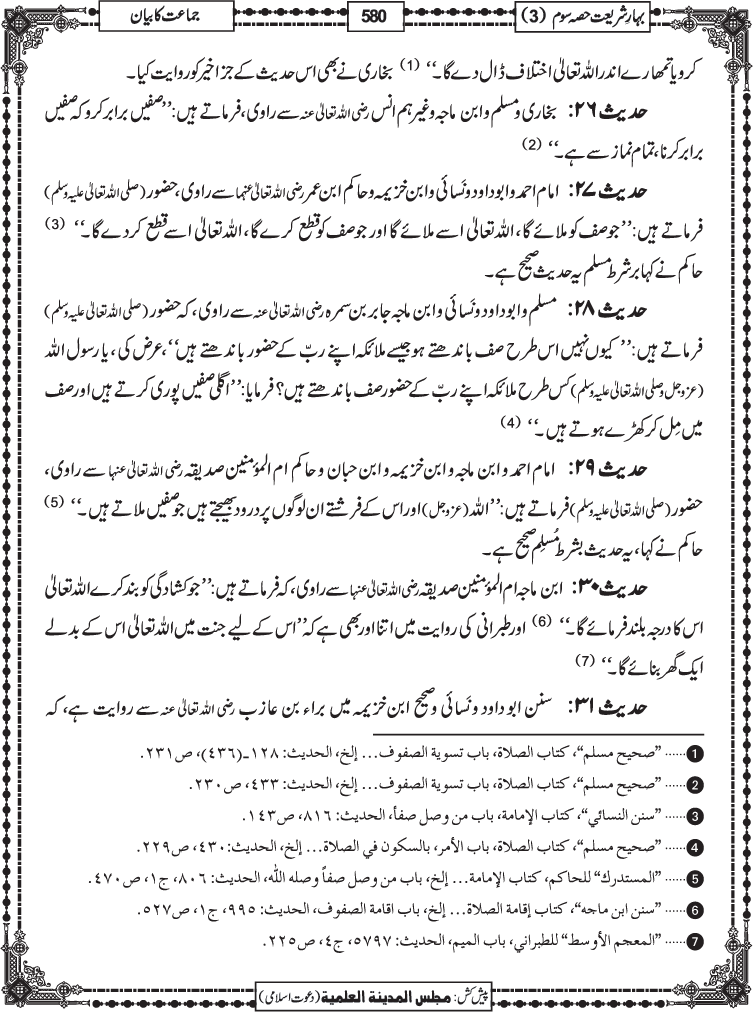 بہار شریعت حصہ سوم (3)
580
جماعت کا بیان
کرو یا تمھارے اندر اللہ تعالیٰ اختلاف ڈال دے گا۔‘‘ (1) بخاری نے بھی اس حدیث کے جز اخیر کو روایت کیا۔
حدیث ۲۶: بخاری و مسلم و ابن ماجہ وغیرہم انس رضی اللہ تعالیٰ عنہ سے راوی، فرماتے ہیں: ’’صفیں برابر کرو کہ صفیں
برابر کرنا، تمام نماز سے ہے۔‘‘ (2)
حدیث ۲۷: امام احمد و ابو داود و نَسائی و ابن خزیمہ و حاکم ابن عمر رضی اللہ تعالیٰ عنہما سے راوی، حضور (صلی اللہ تعالیٰ علیہ وسلم)
فرماتے ہیں: ’’جو صف کو ملائے گا، اللہ تعالیٰ اسے ملائے گا اور جو صف کو قطع کرے گا، اللہ تعالیٰ اسے قطع کر دے گا۔‘‘ (3)
حاکم نے کہا برشرط مسلم یہ حدیث صحیح ہے۔
حدیث ۲۸: مسلم و ابو داود و نَسائی و ابن ماجہ جابر بن سمرہ رضی اللہ تعالیٰ عنہ سے راوی، کہ حضور (صلی اللہ تعالیٰ علیہ وسلم)
فرماتے ہیں: ’’کیوں نہیں اس طرح صف باندھتے ہو جیسے ملائکہ اپنے ربّ کے حضور باندھتے ہیں‘‘، عرض کی، یا رسول اللہ
(عزوجل و صلی اللہ تعالیٰ علیہ وسلم) کس طرح ملائکہ اپنے ربّ کے حضور صف باندھتے ہیں؟ فرمایا: ’’اگلی صفیں پوری کرتے ہیں اور صف
میں مِل کر کھڑے ہوتے ہیں۔‘‘ (4)
حدیث ۲۹: امام احمد و ابن ماجہ و ابن خزیمہ و ابن حبان و حاکم ام المؤمنین صدیقہ رضی اللہ تعالیٰ عنہا سے راوی،
حضور (صلی اللہ تعالیٰ علیہ وسلم) فرماتے ہیں: ’’اللہ (عزوجل) اور اس کے فرشتے ان لوگوں پر درود بھیجتے ہیں جو صفیں ملاتے ہیں۔‘‘ (5)
حاکم نے کہا، یہ حدیث بشرط مُسلِم صحیح ہے۔
حدیث ۳۰: ابن ماجہ ام المؤمنین صدیقہ رضی اللہ تعالیٰ عنہا سے راوی، کہ فرماتے ہیں: ’’جو کشادگی کو بند کرے اللہ تعالیٰ
اس کا درجہ بلند فرمائے گا۔‘‘ (6) اور طبرانی کی روایت میں اتنا اور بھی ہے کہ ’’اس کے لیے جنت میں اللہ تعالیٰ اس کے بدلے
ایک گھر بنائے گا۔‘‘ (7)
حدیث ۳۱: سنن ابو داود و نَسائی و صحیح ابن خزیمہ میں براء بن عازب رضی اللہ تعالیٰ عنہ سے روایت ہے، کہ
1 ...... ”صحيح مسلم“، كتاب الصلاة، باب تسوية الصفوف... إلخ، الحديث: ١٢٨ـ(٤٣٦)، ص٢٣١.
2 ...... ”صحيح مسلم“، كتاب الصلاة، باب تسوية الصفوف... إلخ، الحديث: ٤٣٣، ص٢٣٠.
3 ...... ”سنن النسائي“، كتاب الإمامة، باب من وصل صفاً، الحديث: ٨١٦، ص١٤٣.
4 ...... ”صحيح مسلم“، كتاب الصلاة، باب الأمر، بالسكون في الصلاة... إلخ، الحديث: ٤٣٠، ص٢٢٩.
5 ...... ”المستدرك“ للحاكم، كتاب الإمامة... إلخ، باب من وصل صفاً وصله الله، الحديث: ٨٠٦، ج١، ص٤٧٠.
6 ...... ”سنن ابن ماجه“، كتاب إقامة الصلاة... إلخ، باب اقامة الصفوف، الحديث: ٩٩٥، ج١، ص٥٢٧.
7 ...... ”المعجم الأوسط“ للطبراني، باب الميم، الحديث: ٥٧٩٧، ج٤، ص٢٢٥.
پیش کش: مجلس المدينة العلمية (دعوت اسلامی)